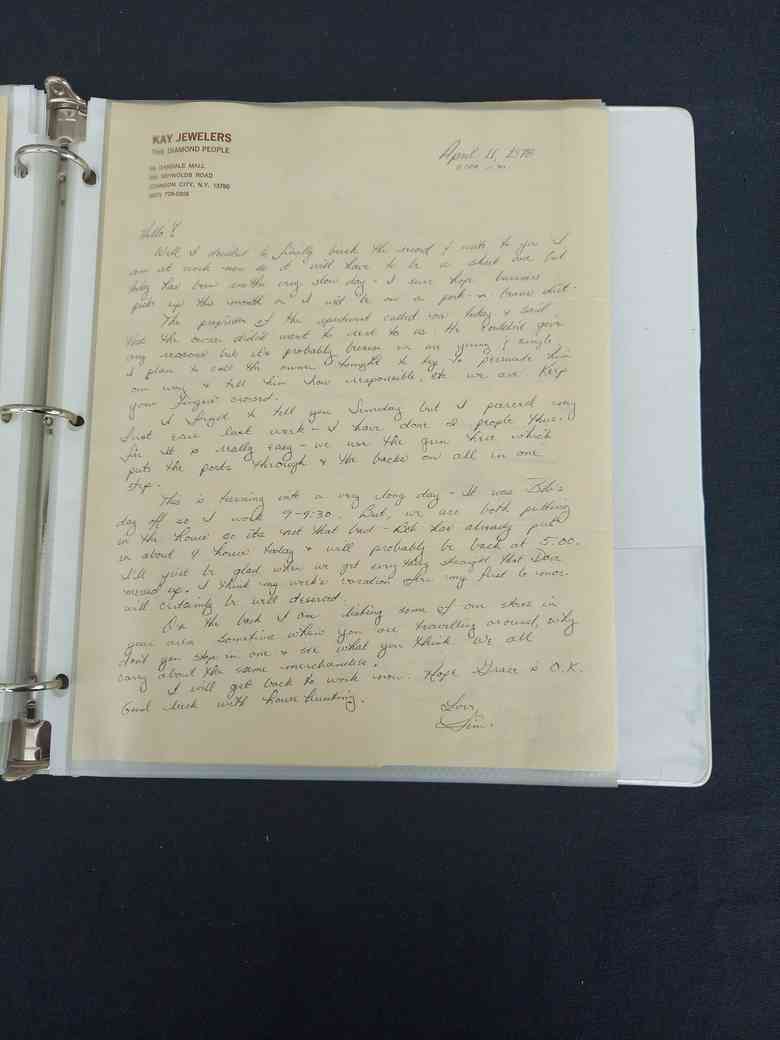 KAY JEWELERS
THE DIAMOND PEOPLE
OAKDALE MALL
REYNOLDS ROAD
JOHNSON CITY, N.Y. 13790
April 11, 1978
Hello!
Well I decided to finally break the record & write to you. I
am at work now so it will have to be a short one but
today has been another very slow day - I sure hope business
picks up this month or I will be on a pork - n - beans diet.
The proprietor of the apartment called today & said
that the owner didn't want to rent to us. He couldn't give
any reasons but it's probably because we are young & single.
I plan to call the owner tonight to try to persuade him
our way & tell him how responsible, etc we are. Keep
your fingers crossed.
I forgot to tell you Sunday but I pierced my
first ears last week - I have done 2 people thus
far. It is really easy - we use the gun here which
puts the posts through & the backs on all in one
step.
This is turning into a very long day - It was Bob's
day off so I work 9-9:30. But, we are both putting
in the hours so its not that bad - Bob has already put
in about 4 hours today & will probably be back at 5:00.
I'll just be glad when we get everything straight
up. I think my week's vacation after my first 6 mos.
will certainly be well deserved.
On the back I am listing some of our stores in
your area. Sometime when you are travelling around, why
don't you stop in one & see what you think. We all
carry about the same merchandise.
I will get back to work now. Hope Grace is O.K.
Good luck with house hunting.
Love,
Jim.